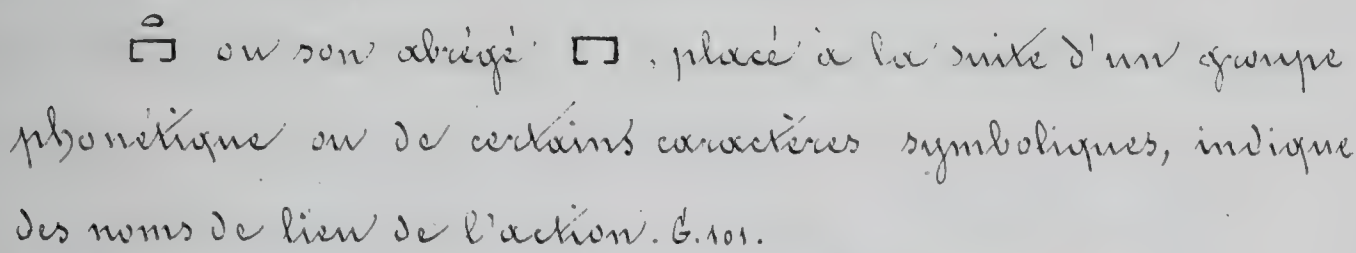 𓏏𓉐 ou son abrégé 𓉐, placé à la suite d'un groupe
phonétique ou de certains caractères symboliques, indique
des noms de lieu de l'action. G. 101.